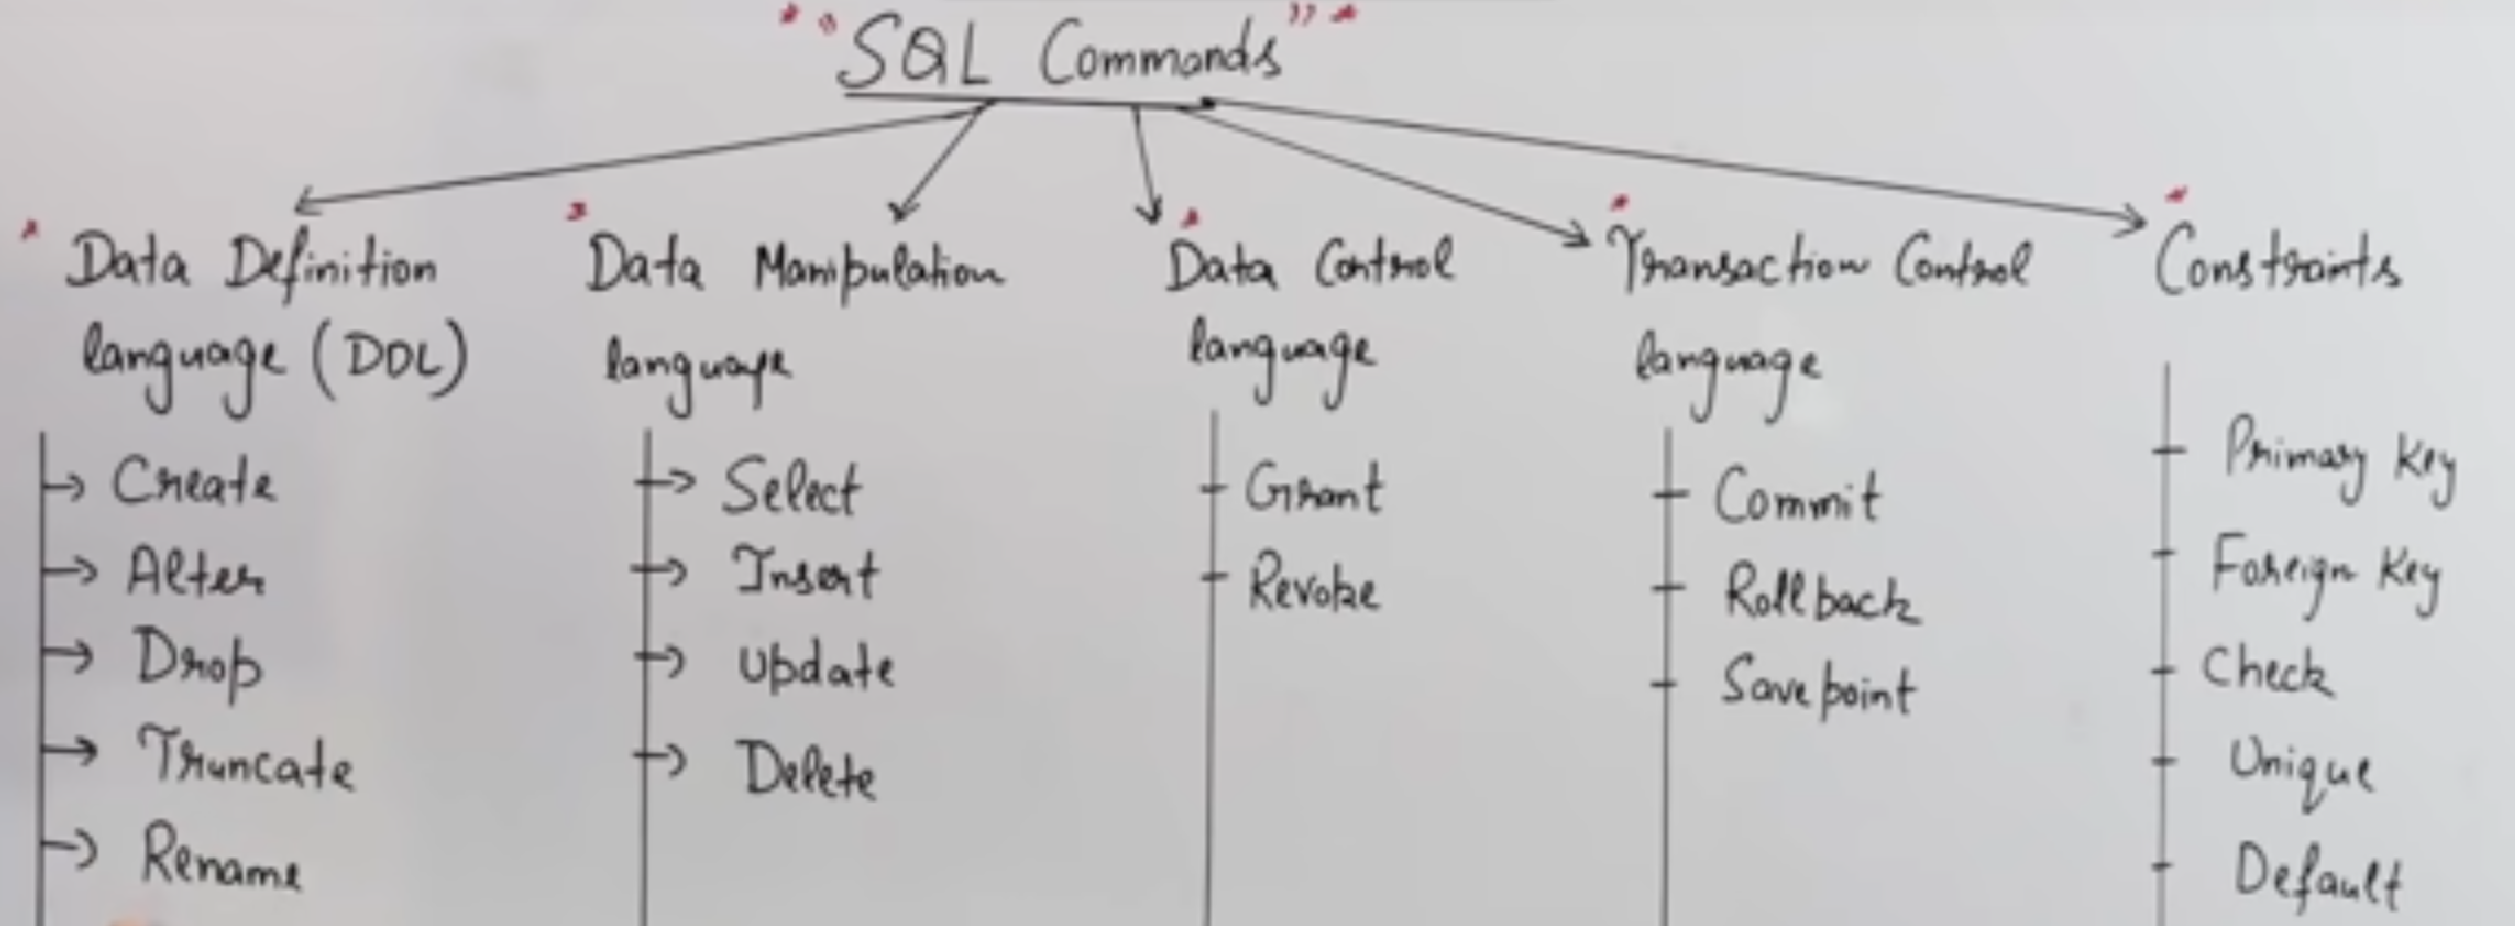 "SQL Commands"
Data Definition
language (DDL)
Create
Alter
Drop
Truncate
Rename
Data Manipulation
language
Select
Insert
Update
Delete
Data Control
language
Grant
Revoke
Transaction Control
language
Commit
Rollback
Savepoint
Constraints
Primary Key
Foreign Key
Check
Unique
Default